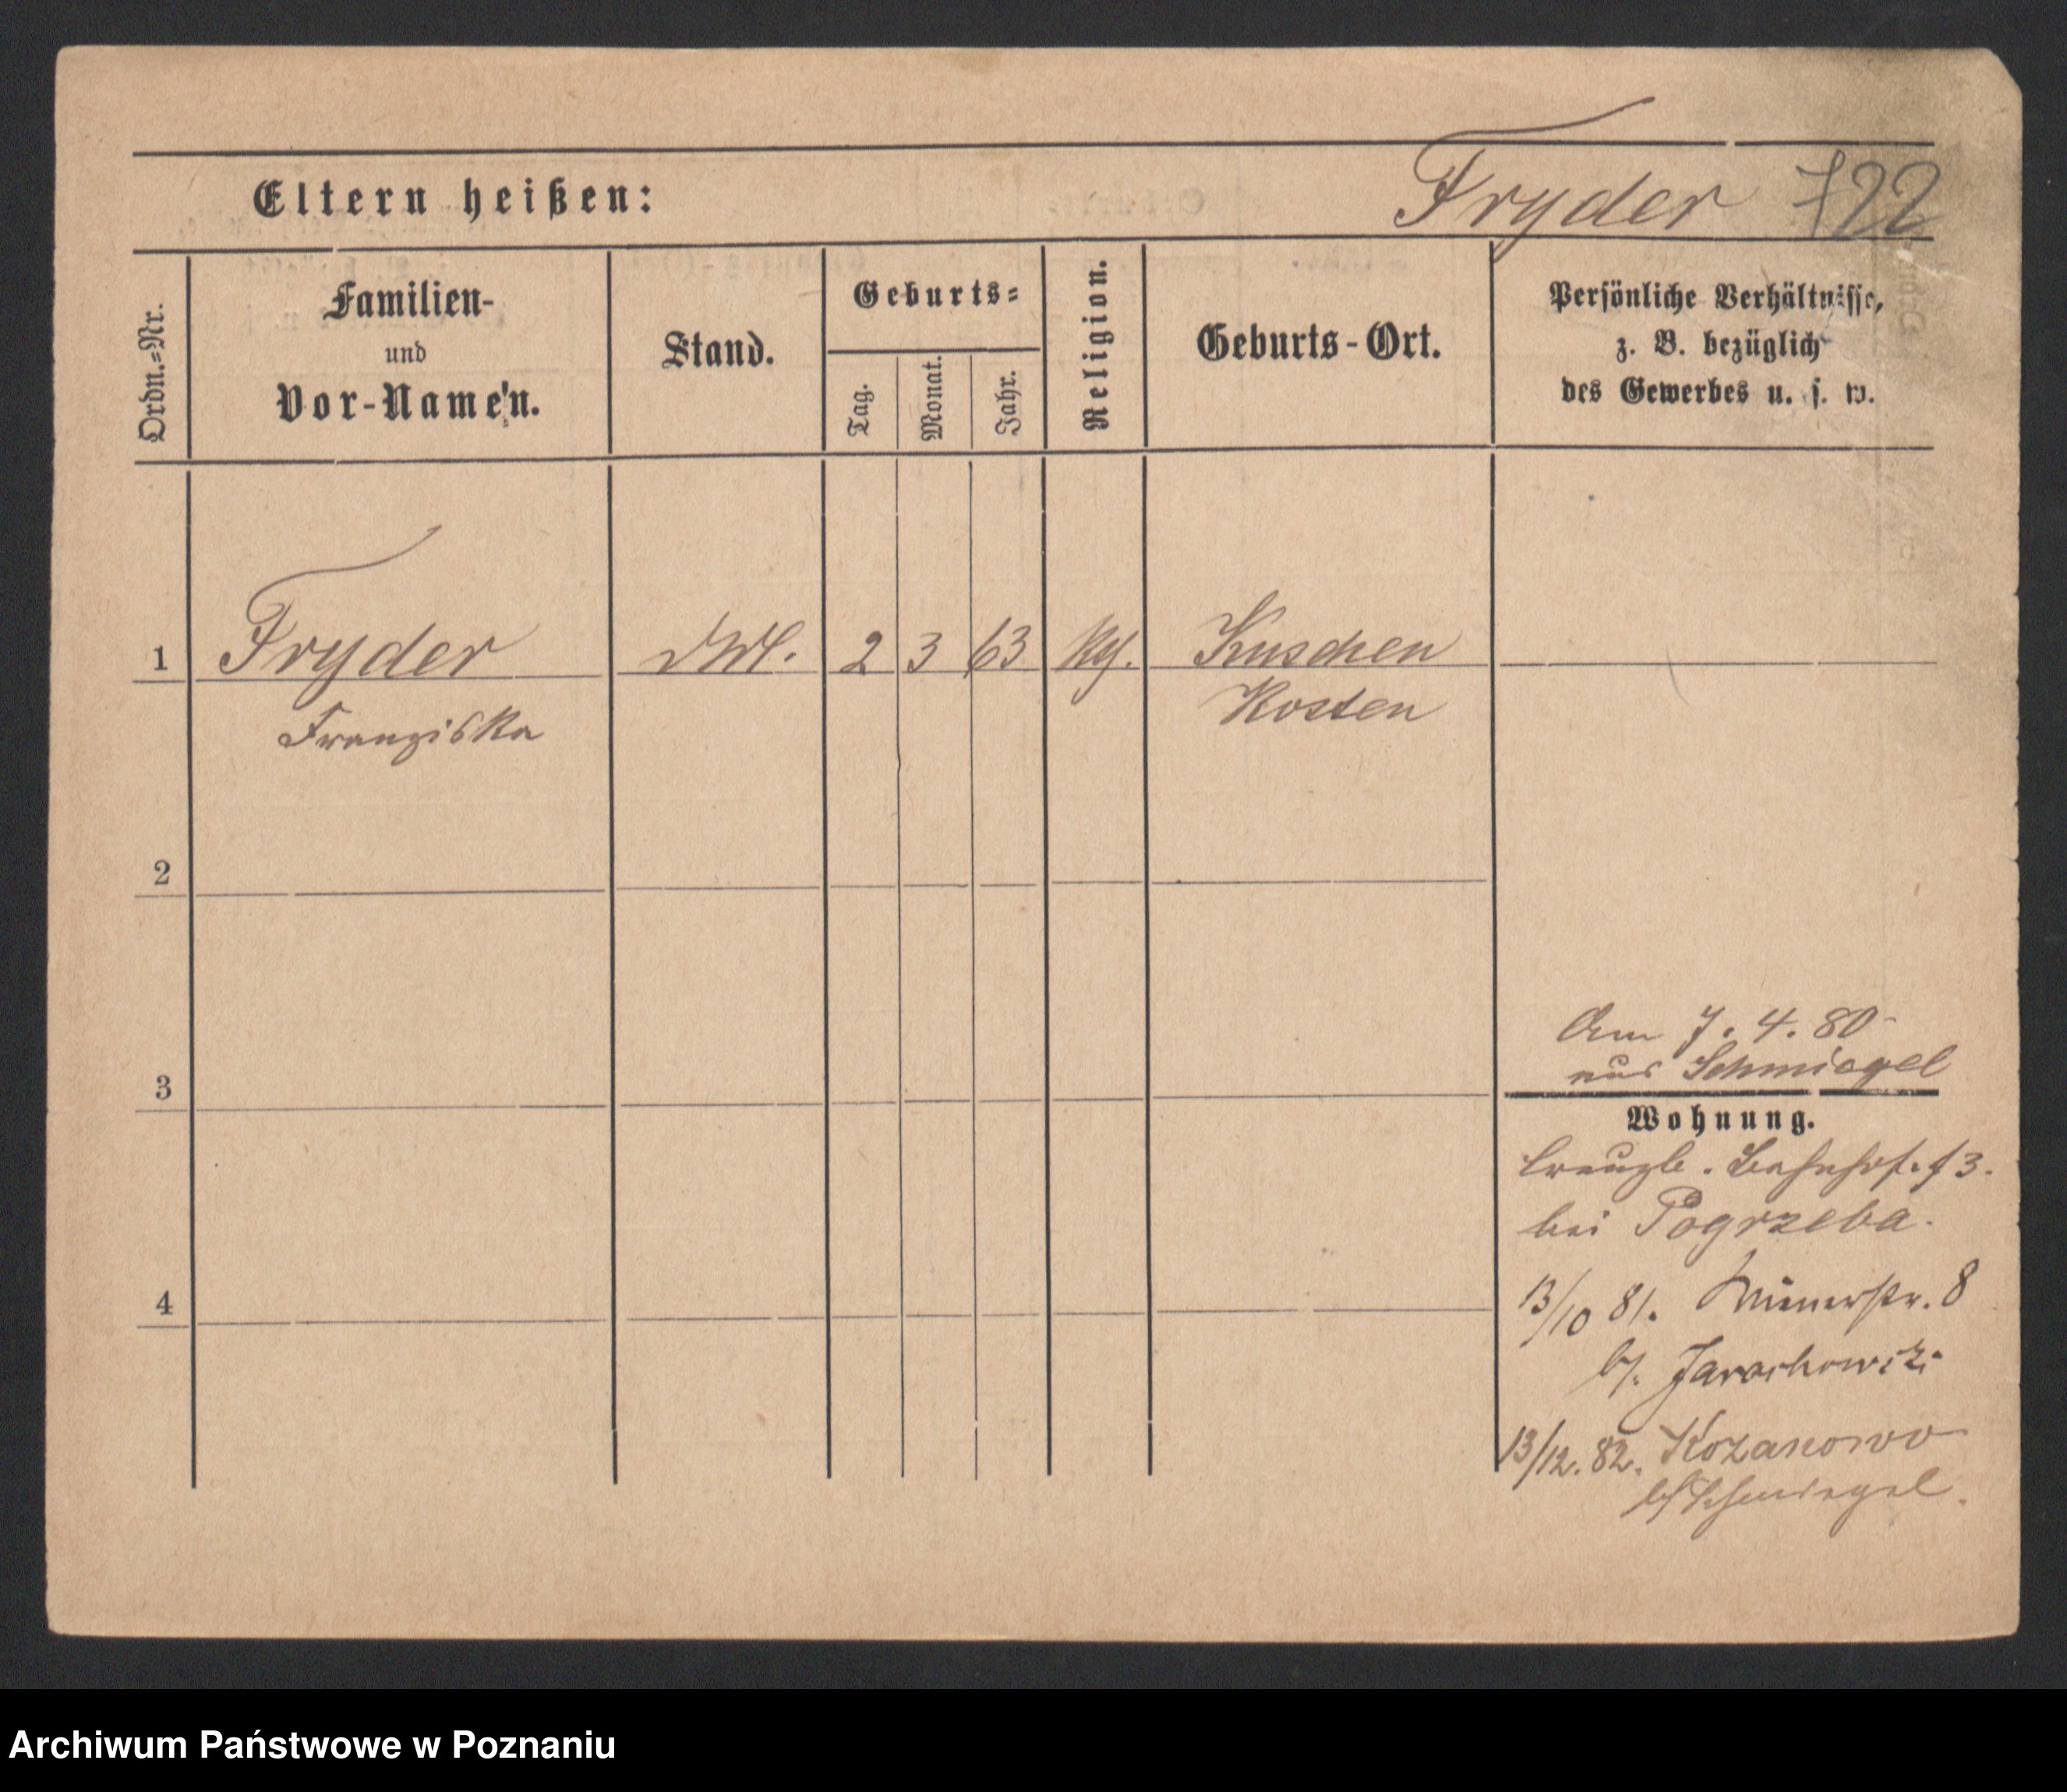 Eltern heißen: Fryder 722
Ordn.=Nr. Familien- und Vor-Namen. Stand. Geburts= Tag. Monat. Jahr. Religion. Geburts-Ort. Persönliche Verhältnisse, z. B. bezüglich des Gewerbes u. s. w.
1 Fryder 2 3 63 Kuschen
Franziska Kosten
2
Am 7. 4. 80
3 aus Schmiegel
Wohnung.
bei Pogrzeba.
4 13/10 81. 8
13/12. 82.
Schmiegel.
Archiwum Państwowe w Poznaniu